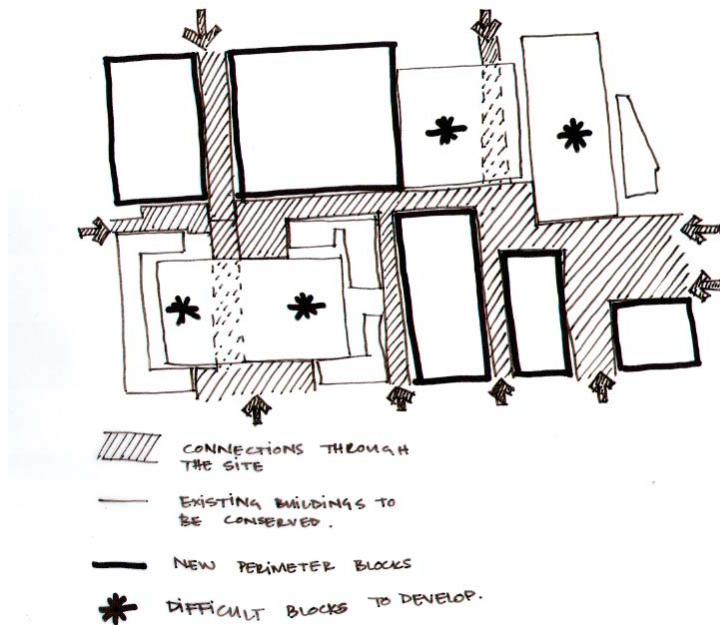 CONNECTIONS THROUGH
THE SITE
EXISTING BUILDINGS TO
BE CONSERVED.
NEW PERIMETER BLOCKS
DIFFICULT BLOCKS TO DEVELOP.